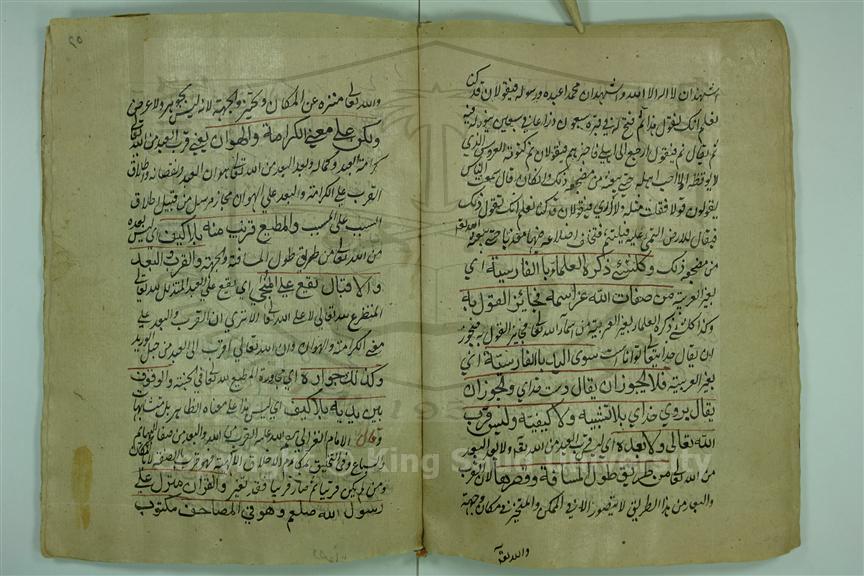 اشهد ان لا اله الا الله واشهد ان محمدا عبده ورسوله فيقولان قد كنا
نعلم انك تقول هذا ثم يفتح له في قبره سبعون ذراعا في سبعين ثم ينور له فيه
ثم يقال نم فيقول ارجع الى اهلي فاخبرهم فيقولان نم كنومة العروس الذي
لا يوقظه الا احب اهله حتى يبعثه من مضجعه ذلك وان كان قال سمعت الناس
يقولون قولا فقلت مثله لا ادري فيقولان قد كنا نعلم انك تقول ذلك
فيقال للارض التئمي عليه فيلتئم فتختلف اضلاعه فيها معذبا حتى يبعثه الله تعالى
من مضجعه ذلك وكل شيء ذكره العلماء بالفارسية اي
بغير العربية من صفات الله عز اسمه فجائز القول به
وكذا كل شيء ذكره العلماء بغير العربية من اسماء الله تعالى فجايز القول به فيجوز
ان يقال خداي تعالى توانا است سوى اليد بالفارسية اي
بغير العربية فلا يجوز ان يقال دست خداي ويجوز ان
يقال بروي خداي بلا تشبيه ولا كيفية وليس قرب
الله تعالى ولا بعده اي ليس قرب العبد من الله تعالى ولا بعد العبد
من الله تعالى من طريق طول المسافة وقصرها لان القرب
والبعد من هذا الطريق لا يتصور الا في المتمكن والمتحيز في مكان وجهة
والله تعالى
والله تعالى منزه عن المكان والحيز والجهة لانه ليس بجوهر ولا عرض
ولكن على معنى الكرامة والهوان يعني قرب العبد من الله تعالى
كرامة العبد وكماله وبعد العبد من الله تعالى هوان العبد ونقصانه واطلاق
القرب على الكرامة والبعد على الهوان مجاز مرسل من قبيل اطلاق
السبب على المسبب والمطيع قريب منه بلا كيف اي ليس بعده
من الله تعالى من طريق طول المسافة والجهة والقرب والبعد
والاقبال يقع على المناجي اي يقع على العبد المتذلل لله تعالى
المتضرع لله تعالى لا على الله تعالى الا ترى ان القرب والبعد على
معنى الكرامة والهوان وان الله تعالى اقرب الى العبد من حبل الوريد
وكذلك جواره اي مجاورة المطيع لله تعالى في الجنة والوقوف
بين يديه بلا كيف اي ليس هذا على معناه الظاهر بل متشابها
وقال الامام الغزالي رحمة الله عليه القرب من الله والبعد من صفات البهائم
والسباع وفي التخلق بمكارم الاخلاق الالهية فهو قرب بالصفة لا بالمكان
ومن لم يكن قريبا ثم صار قريبا فقد تغير والقرآن منزل على
رسول الله صلعم وهو في المصاحف مكتوب